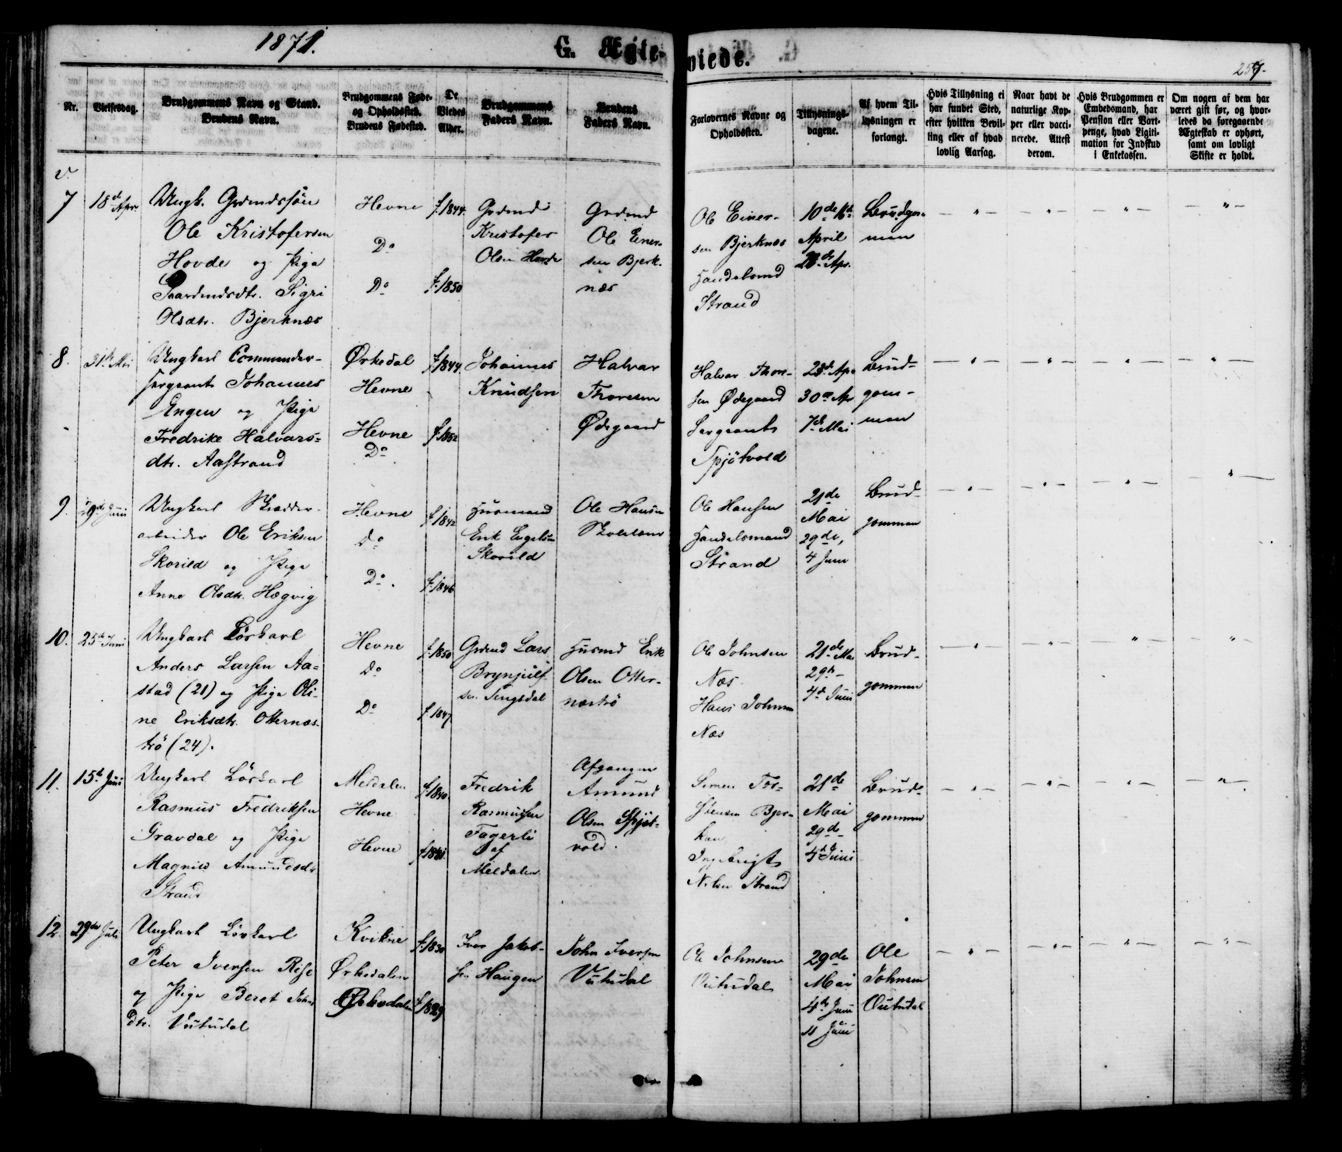 1871.
G. Ægte-
viede.
259.
Nr.
Vielsesdag.
Brudgommens Navn og Stand.
Brudens Navn.
Brudgommens Føde-
og Opholdssted.
Brudens Fødested.
De
Viedes
Alder.
Brudgommens
Faders Navn.
Brudens
Faders Navn.
Forlovernes Navne og
Opholdssted.
Tillysnings-
dagene.
Af hvem Til-
lysningen er
forlangt.
Hvis Tillysning ei
har fundet Sted,
efter hvilken Bevil-
ling eller af hvad
lovlig Aarsag.
Naar havt de
naturlige Kop-
per eller vacci-
nerede. Attest
derom.
Hvis Brudgommen er
Embedsmand, har
Pension eller Vart-
penge, hvad Ligiti-
mation for Indskud
i Enkekassen.
Om nogen af dem har
været gift før, og hvor-
ledes da foregaaende
Ægteskab er ophørt,
samt om lovligt
Skifte er holdt.
7
18de Apr.
Ungk. Grdmdssøn
Ole Kristofersen
Hovde og Pige
Gaardmdsdtr. Sigri
Olsdtr. Bjerknæs
Hevne
Do
Do
f. 1844.
f. 1850
Grdmd
Kristofer
Olsen Hovde
Grdmd
Ole Einer-
sen Bjerk-
næs
Ole Einer-
sen Bjerknæs
Handelsmd
Strand
10de 16de
April
23de Apr.
Brudgom-
men
8.
31te Mai
Ungkarl Commander-
sergeant Johannes
Engen og Pige
Fredrike Halvars-
dtr. Aastrand
Ørkedal
Hevne
Hevne
Do
f. 1844.
f. 1852
Johannes
Knudsen
Halvar
Thoresen
Ødegaard
Halvar Thore-
sen Ødegaard
Sergeant
Spjøtvold
23de Apr
30te Apr
7de Mai
Brud-
gom-
men
9.
29de Juni
Ungkarl Skrædder-
arbeider Ole Eriksen
Skovild og Pige
Anne Olsdtr. Hægvig
Hevne
Do
Do.
f. 1842
f. 1846
Husmand
Erik Engels-
Skovild
Ole Hansen
Ole Hansen
Handelsmand
Strand
21de
Mai
29de,
4 Juni
Brud-
gommen
10.
25de Juni
Ungkarl Løskarl
Anders Larsen Aa-
stad (21) og Pige Oli-
ne Eriksdtr. Otternæs-
trø (24).
Hevne
Do
Do
f. 1850
f. 1847
Grdmd Lars
Brynjulf-
sen Singsdal
Husmd Erik
Olsen Otter-
næstrø
Ole Johnsen
Næs.
Hans Johnsen
Næs
21de Mai
29de
4de Juni
Brud-
gommen
11.
15de Juni
Ungkarl Løskarl
Rasmus Fredriksen
Gravdal og Pige
Magnild Amundsdtr
Strand
Meldalen
Hevne
Hevne
f. 1840
Fredrik
Rasmussen
Fagerli
af
Meldalen
Afgangen
Amund
Olsen Spjøt-
vold.
Simen Tor-
stensen Bjer-
kan
Ingebrigt
Nilsen Strand
21de
Mai
29de
4de Juni
Brud-
gommen
12.
29de Juli
Ungkarl Løskarl
Peter Iversen Rise
og Pige Beret Johns
dtr. Vutudal
Kvikne
Ørkedalen
Ørkedalen
f. 1830
f. 1829
Iver Jakob-
sen Haugen
John Iversen
Vutudal
Ole Johnsen
Vutudal
29de
Mai
4de Juni
11 Juni
Ole
Johnsen
Vutudal